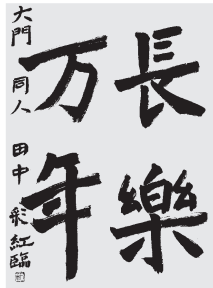 長樂
万年
大門 同人 田中 彩紅臨